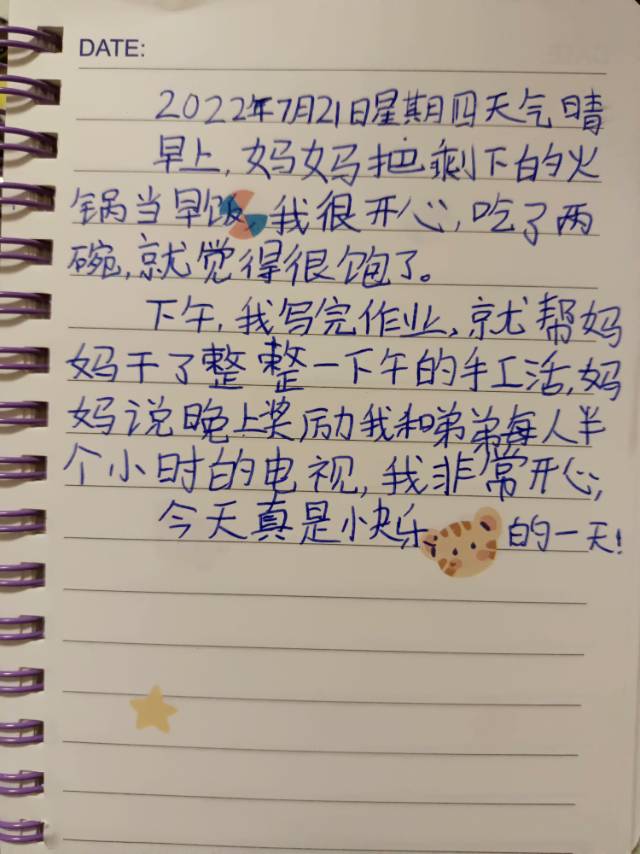 DATE:
2022年7月21日星期四天气晴
早上,妈妈把剩下的火
锅当早饭,我很开心,吃了两
碗,就觉得很饱了。
下午,我写完作业,就帮妈
妈干了整整一下午的手工活,妈
妈说晚上奖励我和弟弟每人半
个小时的电视,我非常开心,
今天真是快乐的一天!